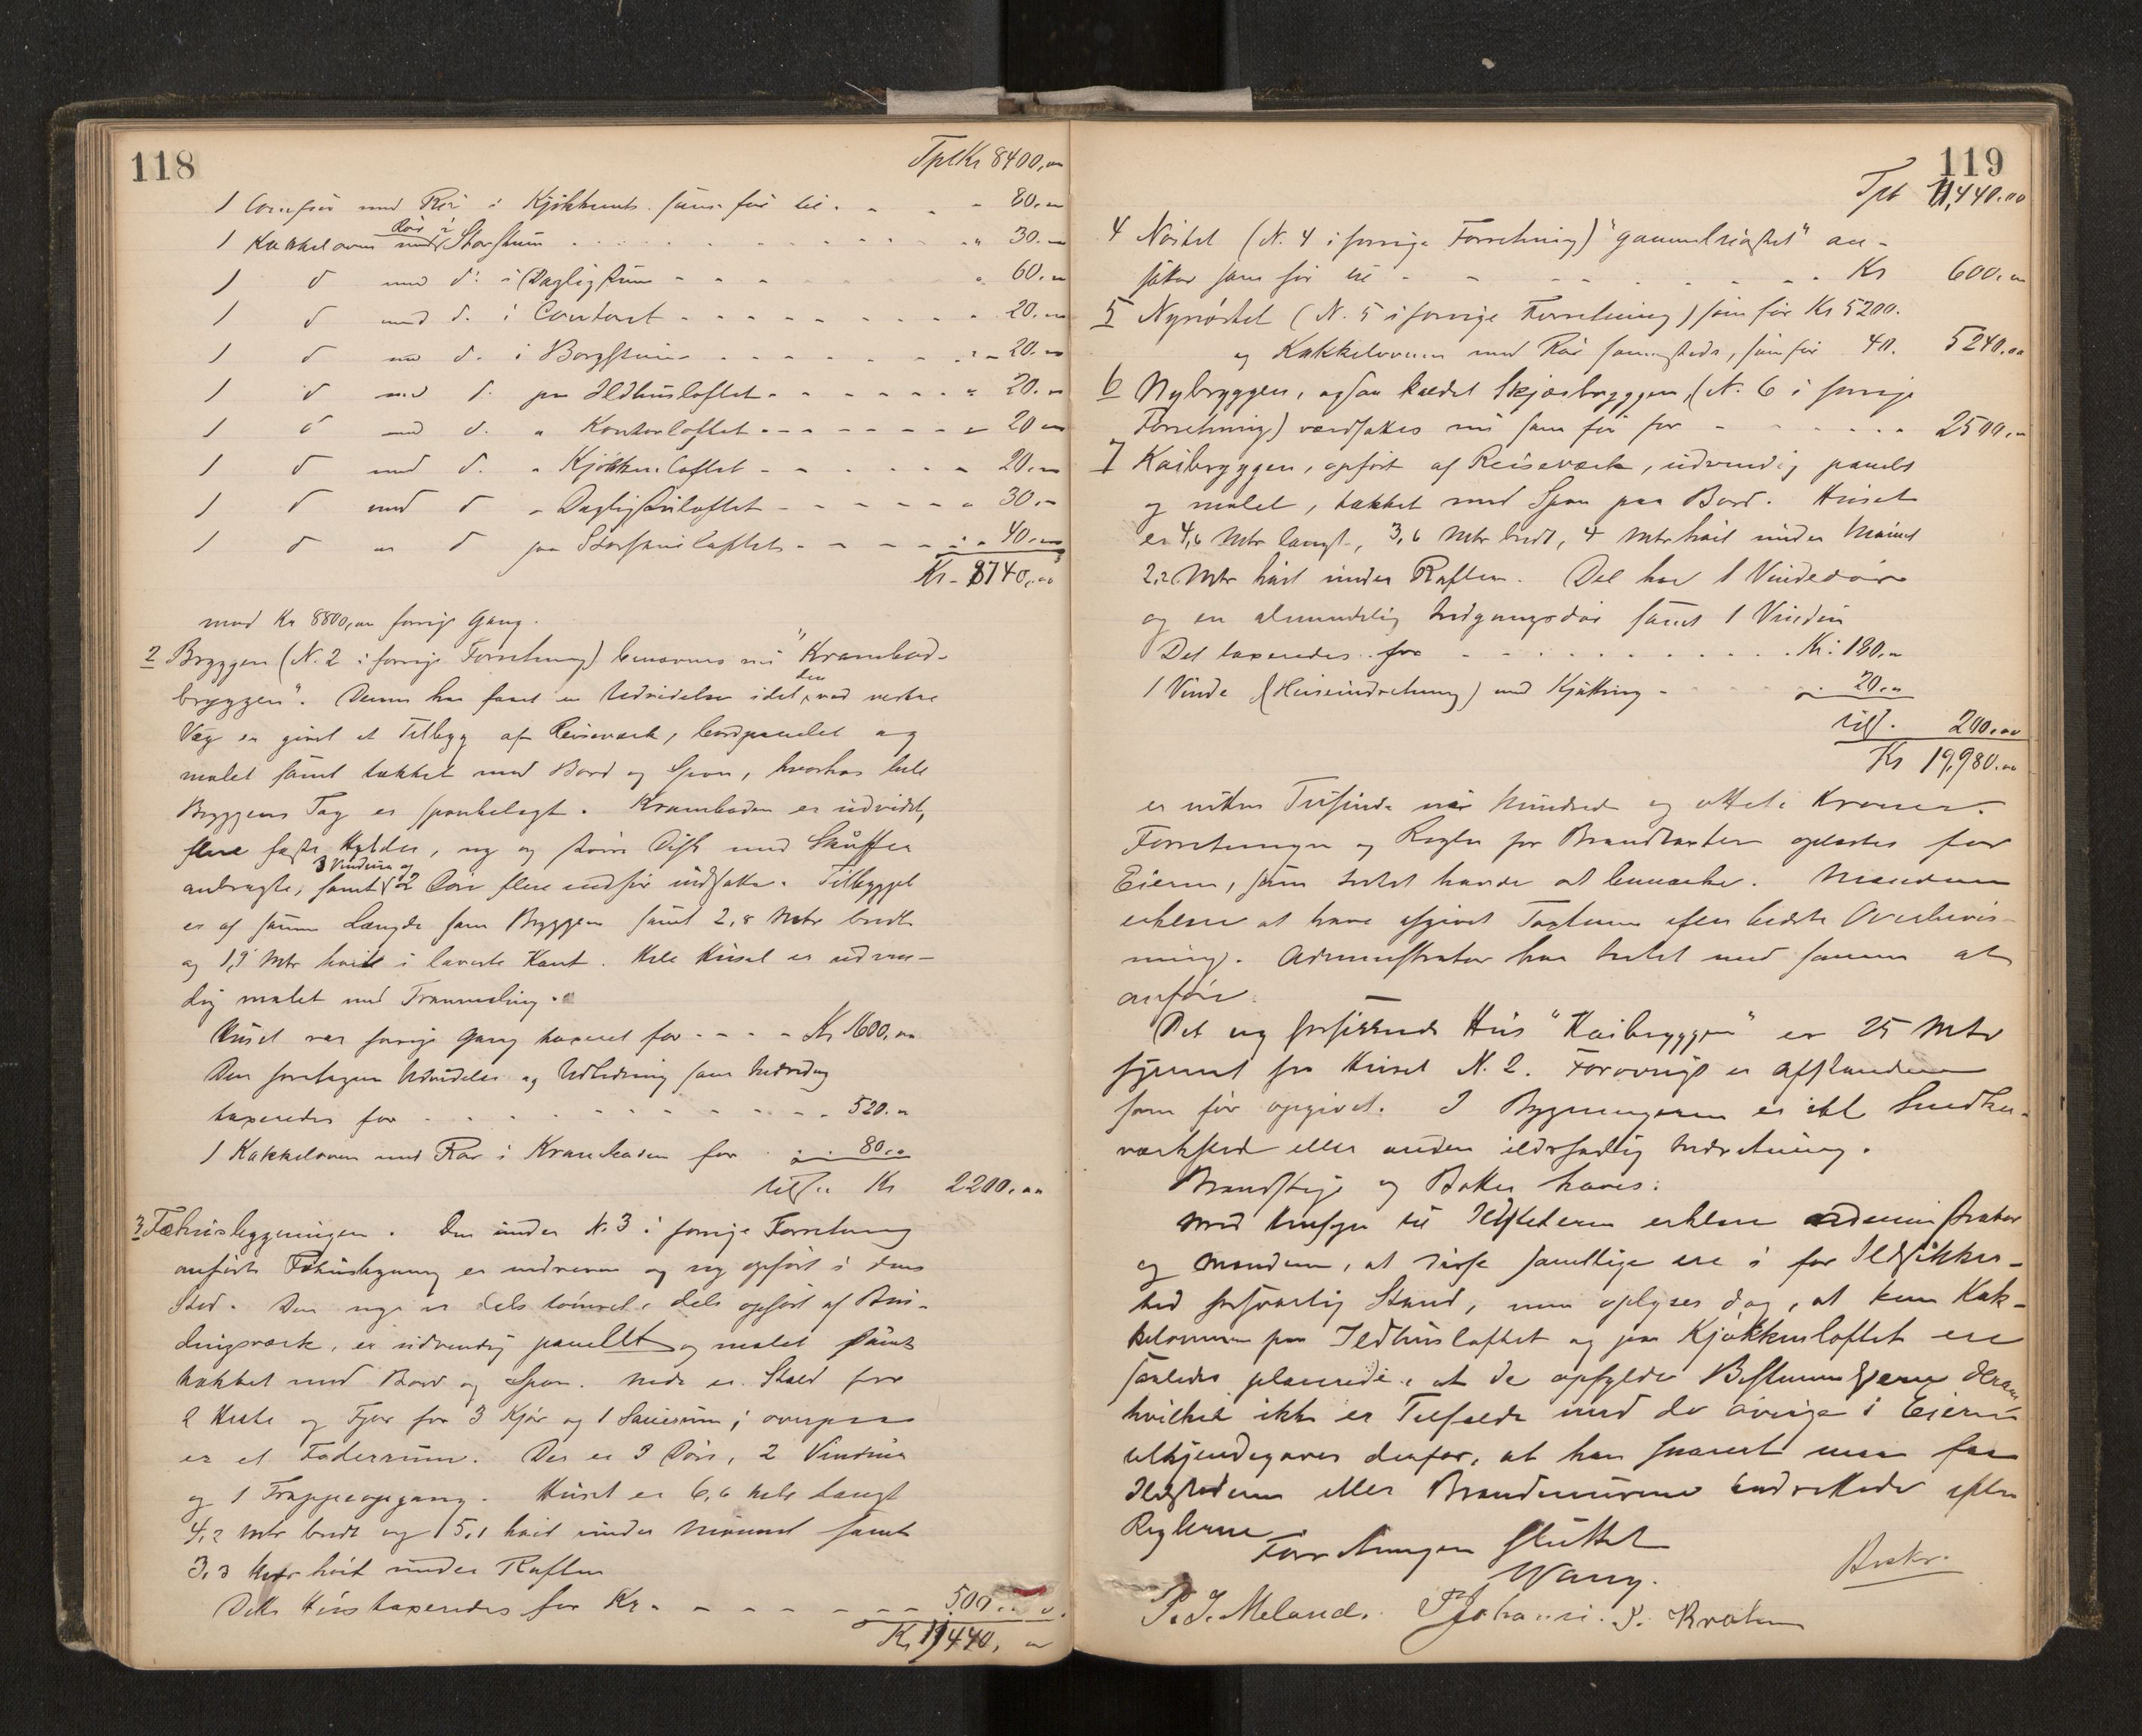 118
Tpt Kr 8400,00
1 Comfur med Rør i Kjøkkenet som før til - - - 80.00
1 Kakkelovn med Rør i Storstuen - - - " 30.00
1 d med d. i Dagligstuen - - - " 60.00
1 d med d. i Contoret - - - 20.00
1 d med d. i Borgstuen - - - 20.00
1 d med d. paa Ildhusloftet - - - " 20.00
1 d med d. " Kontorloftet - - - " 20.00
1 d med d. " Kjøkkenloftet - - - " 20.00
1 d med d " Dagligstuloftet - - - " 30.00
1 d m d paa Storstuloftet - - - " 40.00
Kr. 8740,00
mod Kr 8800,00 forrige Gang.
2 Bryggen (N. 2 i forrige Forretning) benævnes nu "Krambod-
bryggen". Denne har faaet en Udvidelse idet den ved vestre
Væg er givet et Tilbyg af Reisverk, bordpanelet og
malet samt tækket med Bord og Spon, hvorhos hele
Bryggens Tag er sponbelagt. Kramboden er udvidet,
flere faste Hylder, ny og større Disk med Skuffer
anbragte, samt 3 Vinduer og 2 Døre flere end før indsatte. Tilbygget
er af samme Længde som Bryggen samt 2,8 Mtr bredt
og 1,9 Mtr høit i laveste Kant. Hele Huset er udven-
dig malet med Tranmaling.
Huset var forrige Gang taxeret for - - - Kr 1600,00
Den foretagne Udvidelse og Udbedring samt Indredning
taxeredes for - - - 520.00
1 Kakkelovn med Rør i Kramboden for - " - 80.00
tils. Kr 2200.00
3 Fæhusbygningen. Den under N. 3 i forrige Forretning
anførte Fæhusbygning er nedreven og ny opført i dens
Sted. Den nye er dels tømret, dels opført af Bin-
dingsværk, er udvendig panellt og malet samt
tækket med Bord og Spon. Nede er Stald for
2 Heste og Fjøs for 3 Kjør og 1 Sauerum; ovenpaa
er et Foderrum. Der er 3 Døre, 2 Vinduer
og 1 Trappeopgang. Huset er 6,6 Mtr langt
4,2 Mtr bredt og 5,1 høit under Mønet samt
3,3 Mtr høit under Raften
Dette Hus taxeredes for Kr. - - - 500.00
Kr 11440,00
119
Tpt 11,440.00
4 Nøstet (N. 4 i forrige Forretning) "gammelnøstet" an-
sættes som før til - - - Kr 600.00
5 Nynøstet (N. 5 i forrige Forretning) som før Kr 5200.
og Kakkelovnen med Rør sammesteds, som før 40. 5240.00
6 Nybryggen, ogsaa kaldet Skjærbryggen, (N. 6 i forrige
Forretning) værdsattes nu som før for - - - 2500.00
7 Kaibryggen, opført af Reiseværk, udvendig panelet
og malet, tækket med Spon paa Bord. Huset
er 4,6 Mtr langt, 3,6 Mtr bredt, 4 Mtr høit under Mønet
2,2 Mtr høit under Raften. Det har 1 Vindedør
og en almindelig Indgangsdør samt 1 Vindu
Det taxeredes for - - - Kr. 180.00
1 Vinde (Heiseindretning) med Kjætting - - - 20.00
tils. 200.00
Kr 19,980.00
er nitten Tusinde ni Hundrede og otteti Kroner.
Forretningen og Regler for Brandtaxter oplæstes for
Eieren, som Intet havde at bemærke. Mændene
erklærer at have afgivet Taxterne efter bedste Overbevis-
ning. Administrator har Intet med samme at
anføre.
Det ny forsikrede Hus "Kaibryggen" er 25 Mtr
fjernet fra Huset N. 2. Forøvrigt er Afstandene
som før opgivet. I Bygningerne er ikke Snedker-
værksted eller anden ildsfarlig Indretning.
Brandstige og Bøtter haves.
Med Hensyn til Ildstederne erklærer Administrator
og Mændene, at disse samtlige ere i for Ildsikker-
hed forsvarlig Stand, men oplyses dog, at kun Kak-
kelovnene paa Ildhusloftet og paa Kjøkkenloftet ere
saaledes placerede, at de opfylder Bestemmelserne derom
hvilket ikke er Tilfælde med de øvrige i Eieren
tilkjendegaves derfor, at han snarest maa faa
Ildstederne eller Brandmurene indrettede efter
Reglerne.
Forretningen sluttet
Wang.
P. J. Meland. Johansen. Krohn